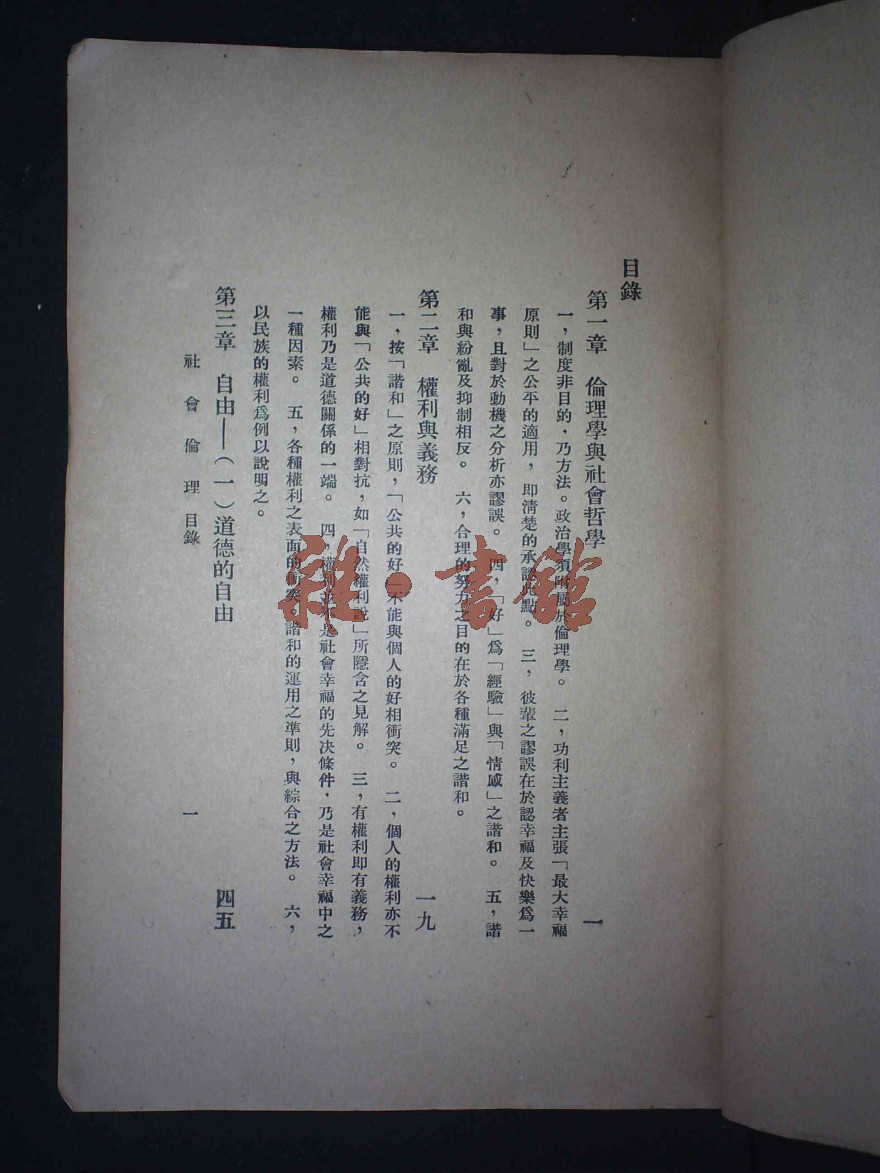 目錄
第一章 倫理學與社會哲學 一
一，制度非目的，乃方法。政治學須附屬於倫理學。 二，功利主義者主張「最大幸福
原則」之公平的適用，即清楚的承認此點。 三，彼輩之謬誤在於認幸福及快樂爲一
事，且對於動機之分析亦謬誤。 四，「好」爲「經驗」與「情感」之諧和。 五，諧
和與紛亂及抑制相反。 六，合理的努力之目的在於各種滿足之諧和。
第二章 權利與義務 一九
一，按「諧和」之原則，「公共的好」不能與個人的好相衝突。 二，個人的權利亦不
能與「公共的好」相對抗，如「自然權利說」所隱含之見解。 三，有權利即有義務，
權利乃是道德關係的一端。 四，權利並不是社會幸福的先決條件，乃是社會幸福中之
一種因素。 五，各種權利之表面的衝突，諧和的運用之準則，與綜合之方法。 六，
以民族的權利爲例以說明之。
第三章 自由——（一）道德的自由 四五
社會倫理 目錄 一
雜·書館